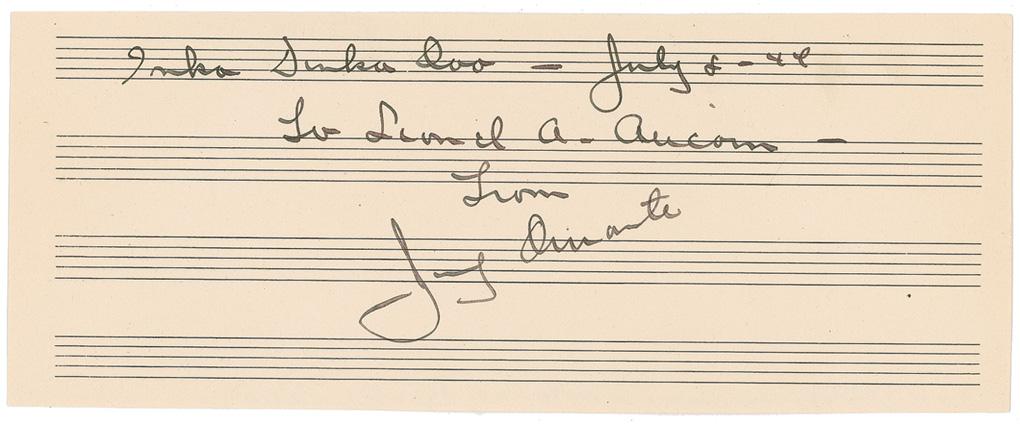 Inka Dinka Doo — July 8-44
To Lionel A. Aucoin —
From
Jimmy Durante